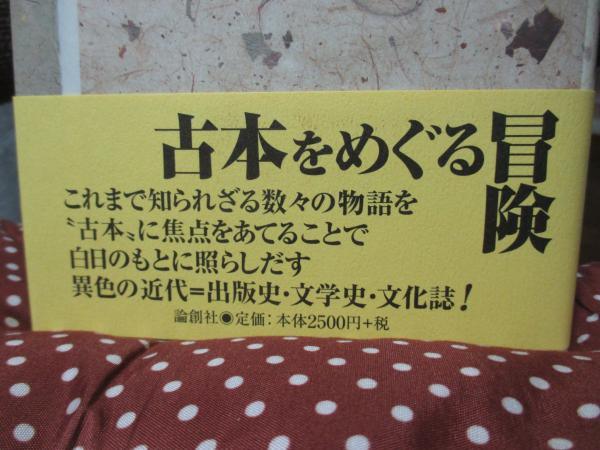 古本をめぐる冒険
これまで知られざる数々の物語を
〝古本〟に焦点をあてることで
白日のもとに照らしだす
異色の近代=出版史・文学史・文化誌!
論創社◉定価:本体2500円+税